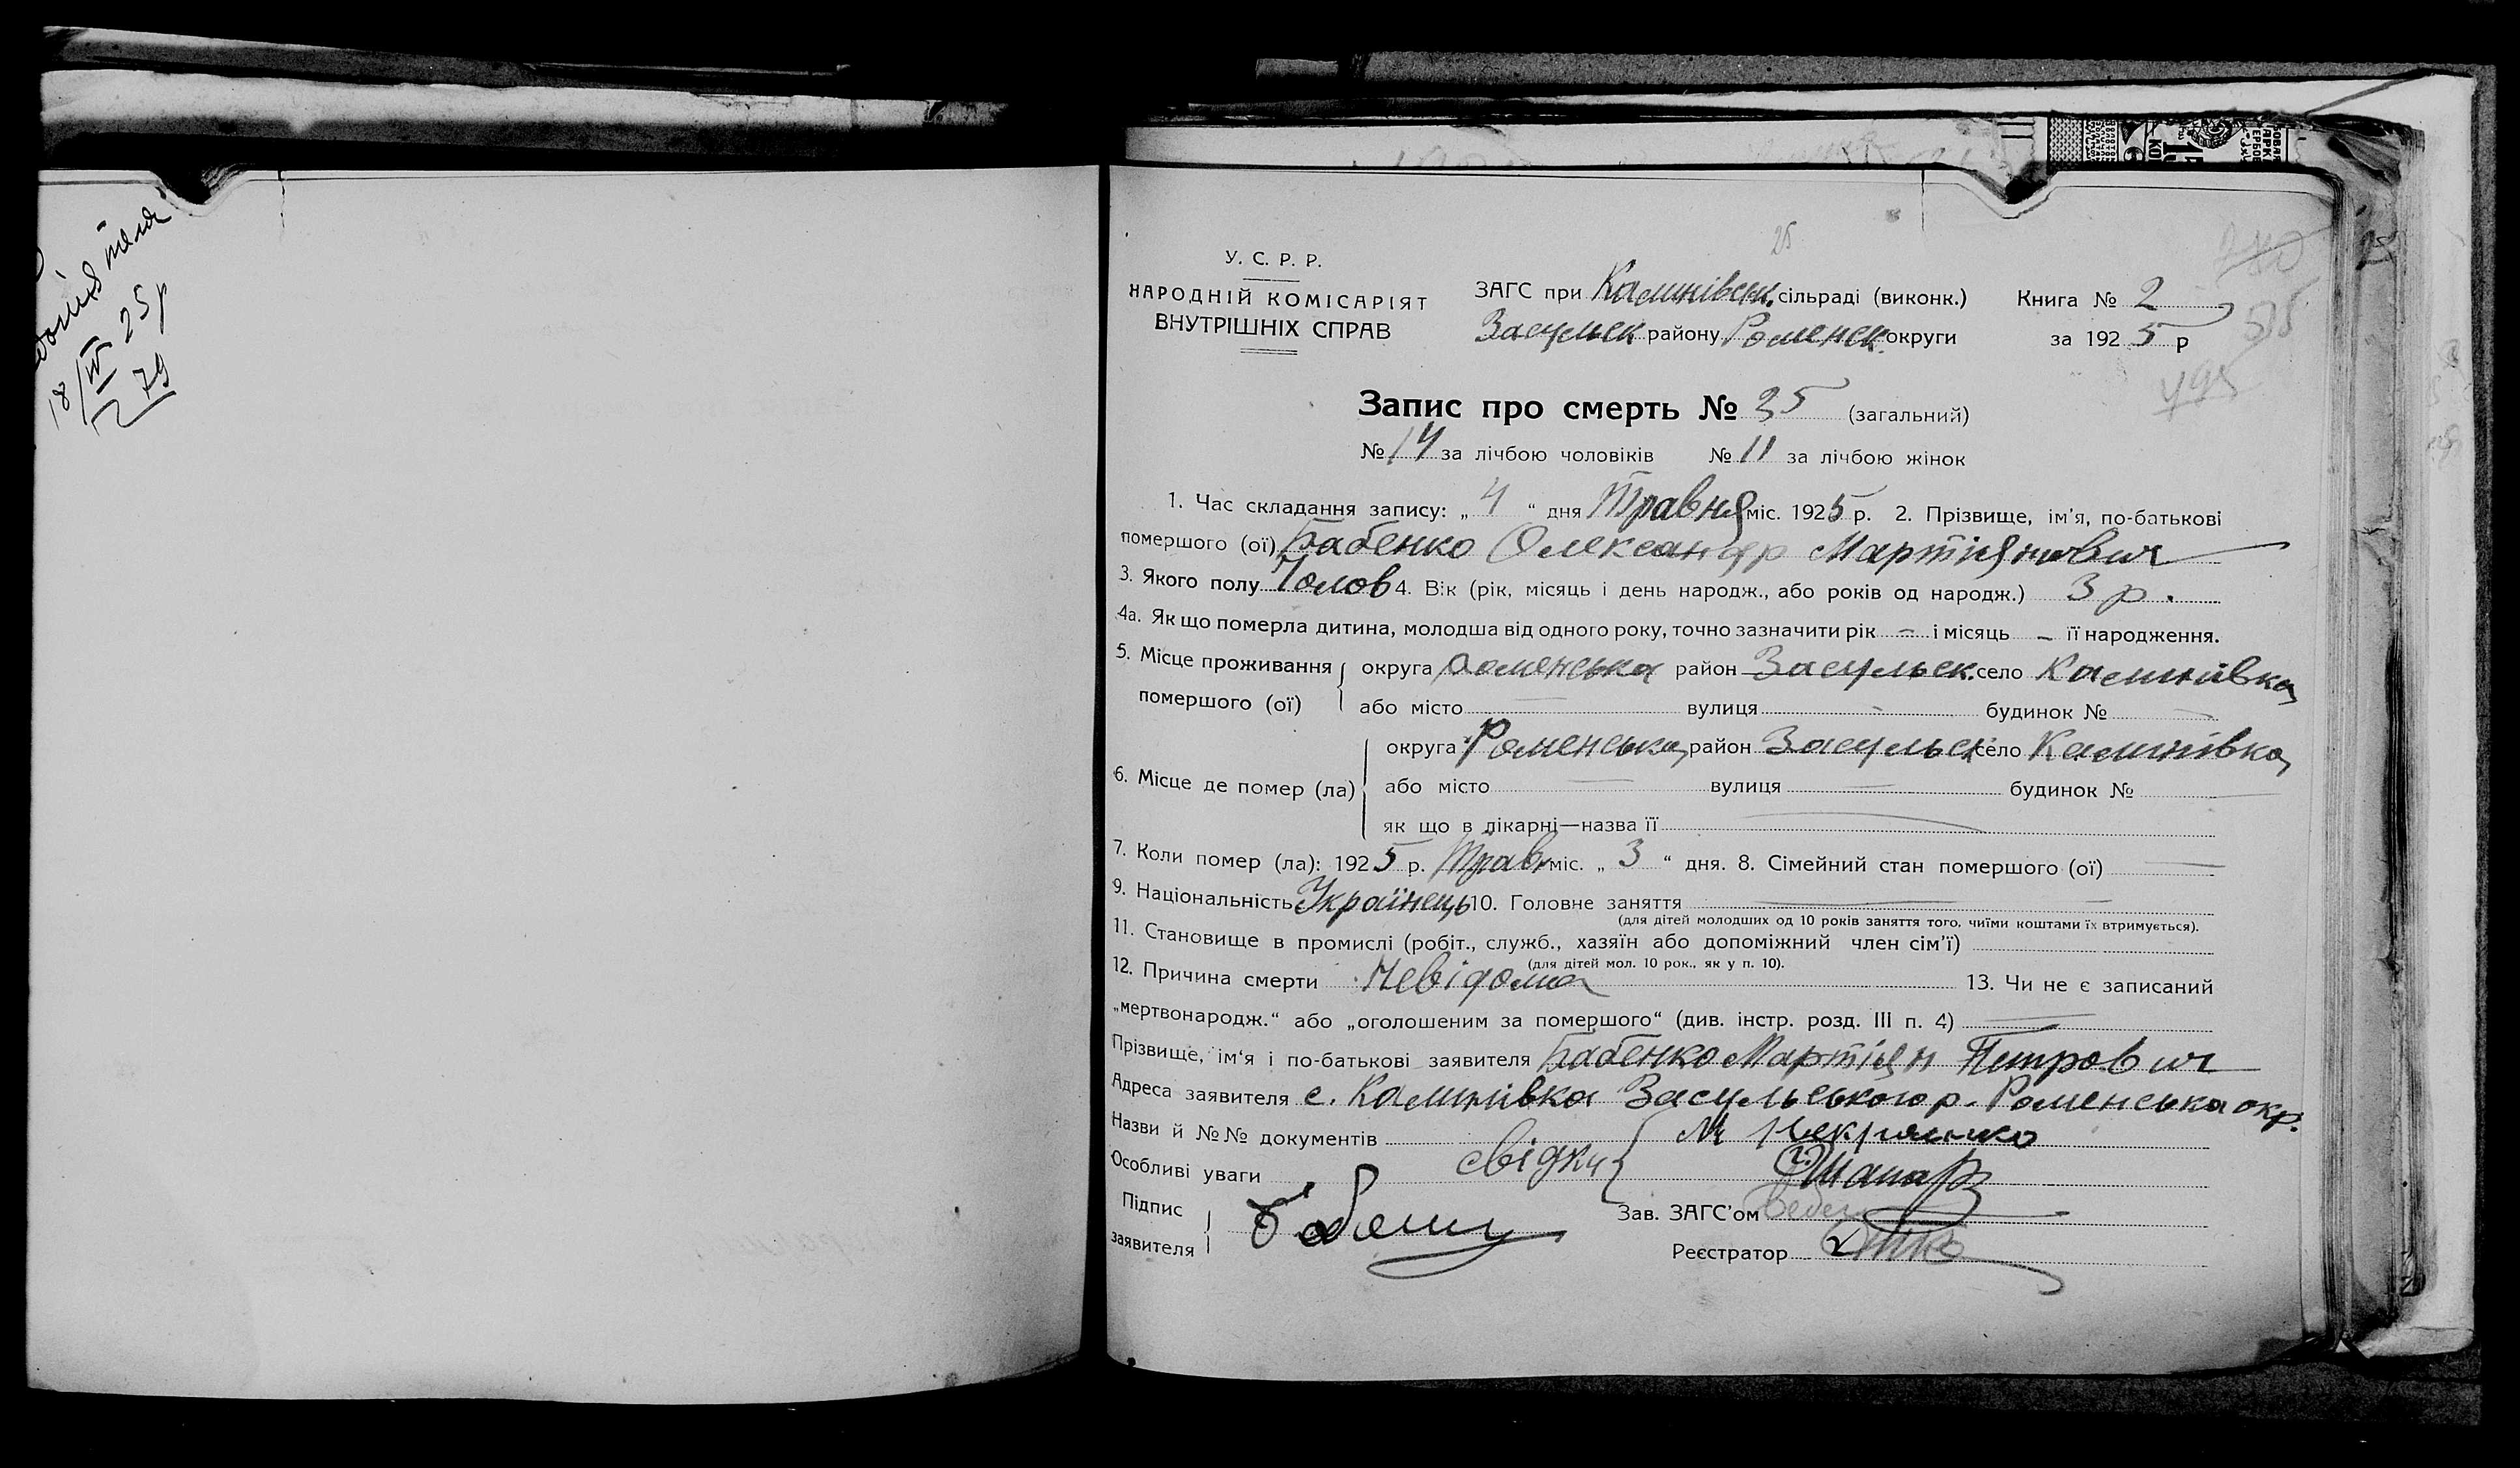 18/IV 25р
79
25
У. С. Р. Р.
НАРОДНІЙ КОМІСАРІЯТ
ВНУТРІШНІХ СПРАВ
ЗАГС при Калинівськ. сільраді (виконк.)
Засульск району Роменск. округи
Книга № 2
за 1925 р
515
495
Запис про смерть № 25 (загальний)
№ 14 за лічбою чоловіків № 11 за лічбою жінок
1. Час складання запису: „ 4 “ дня Травня міс. 1925 р. 2. Прізвище, ім'я, по-батькові
помершого (ої) Бабенко Олександр Мартіянович
3. Якого полу Чолов 4. Вік (рік, місяць і день народж., або років од народж.) 3 р.
4а. Як що померла дитина, молодша від одного року, точно зазначити рік – і місяць – її народження.
5. Місце проживання помершого (ої) округа Роменська район Засульськ. село Калинівка
або місто — вулиця — будинок № —
6. Місце де помер (ла) округа Роменська район Засульськ село Калинівка
або місто — вулиця — будинок № —
як що в лікарні—назва її —
7. Коли помер (ла): 1925 р. Трав. міс. „ 3 “ дня. 8. Сімейний стан помершого (ої) —
9. Національність Українець 10. Головне заняття —
(для дітей молодших од 10 років заняття того, чиїми коштами їх втримується).
11. Становище в промислі (робіт., служб., хазяїн або допоміжний член сім'ї)
(для дітей мол. 10 рок., як у п. 10).
12. Причина смерти Невідома 13. Чи не є записаний
„мертвонародж.“ або „оголошеним за помершого“ (див. інстр. розд. III п. 4) —
Прізвище, ім'я і по-батькові заявителя Бабенко Мартіян Петрович
Адреса заявителя с. Калинівка Засульського р. Роменська окр.
Назви й №№ документів
Особливі уваги свідки
Підпис заявителя
Зав. ЗАГС'ом
Реєстратор